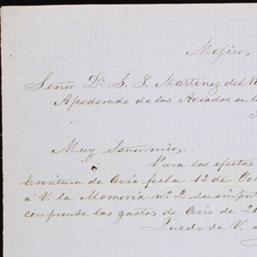 Mejico,
Señor Dn. S. S. Martinez del
Apoderado de los Aviados en
Muy Señor mio,
Para los efectos
Escritura de Avio fecha 13 de
á V. la Memoria nº 2. su
comprende los gastos de Avio de 2
Puede de V. a